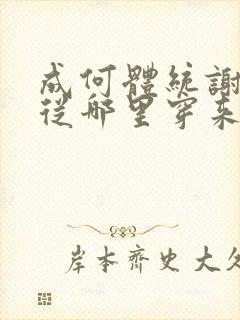 成何體統謝
從哪里穿来
岸本齊史大久